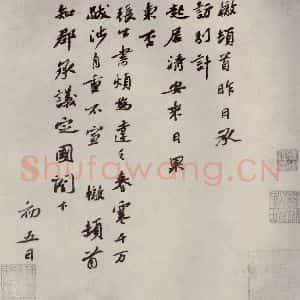 轍頓首昨日承
訪別計
起居清安來日果
東否
張公書煩為達之春寒千萬
跋涉自重不宣 轍頓首
知郡承議定國閣下
初五日
Shufawang.CN